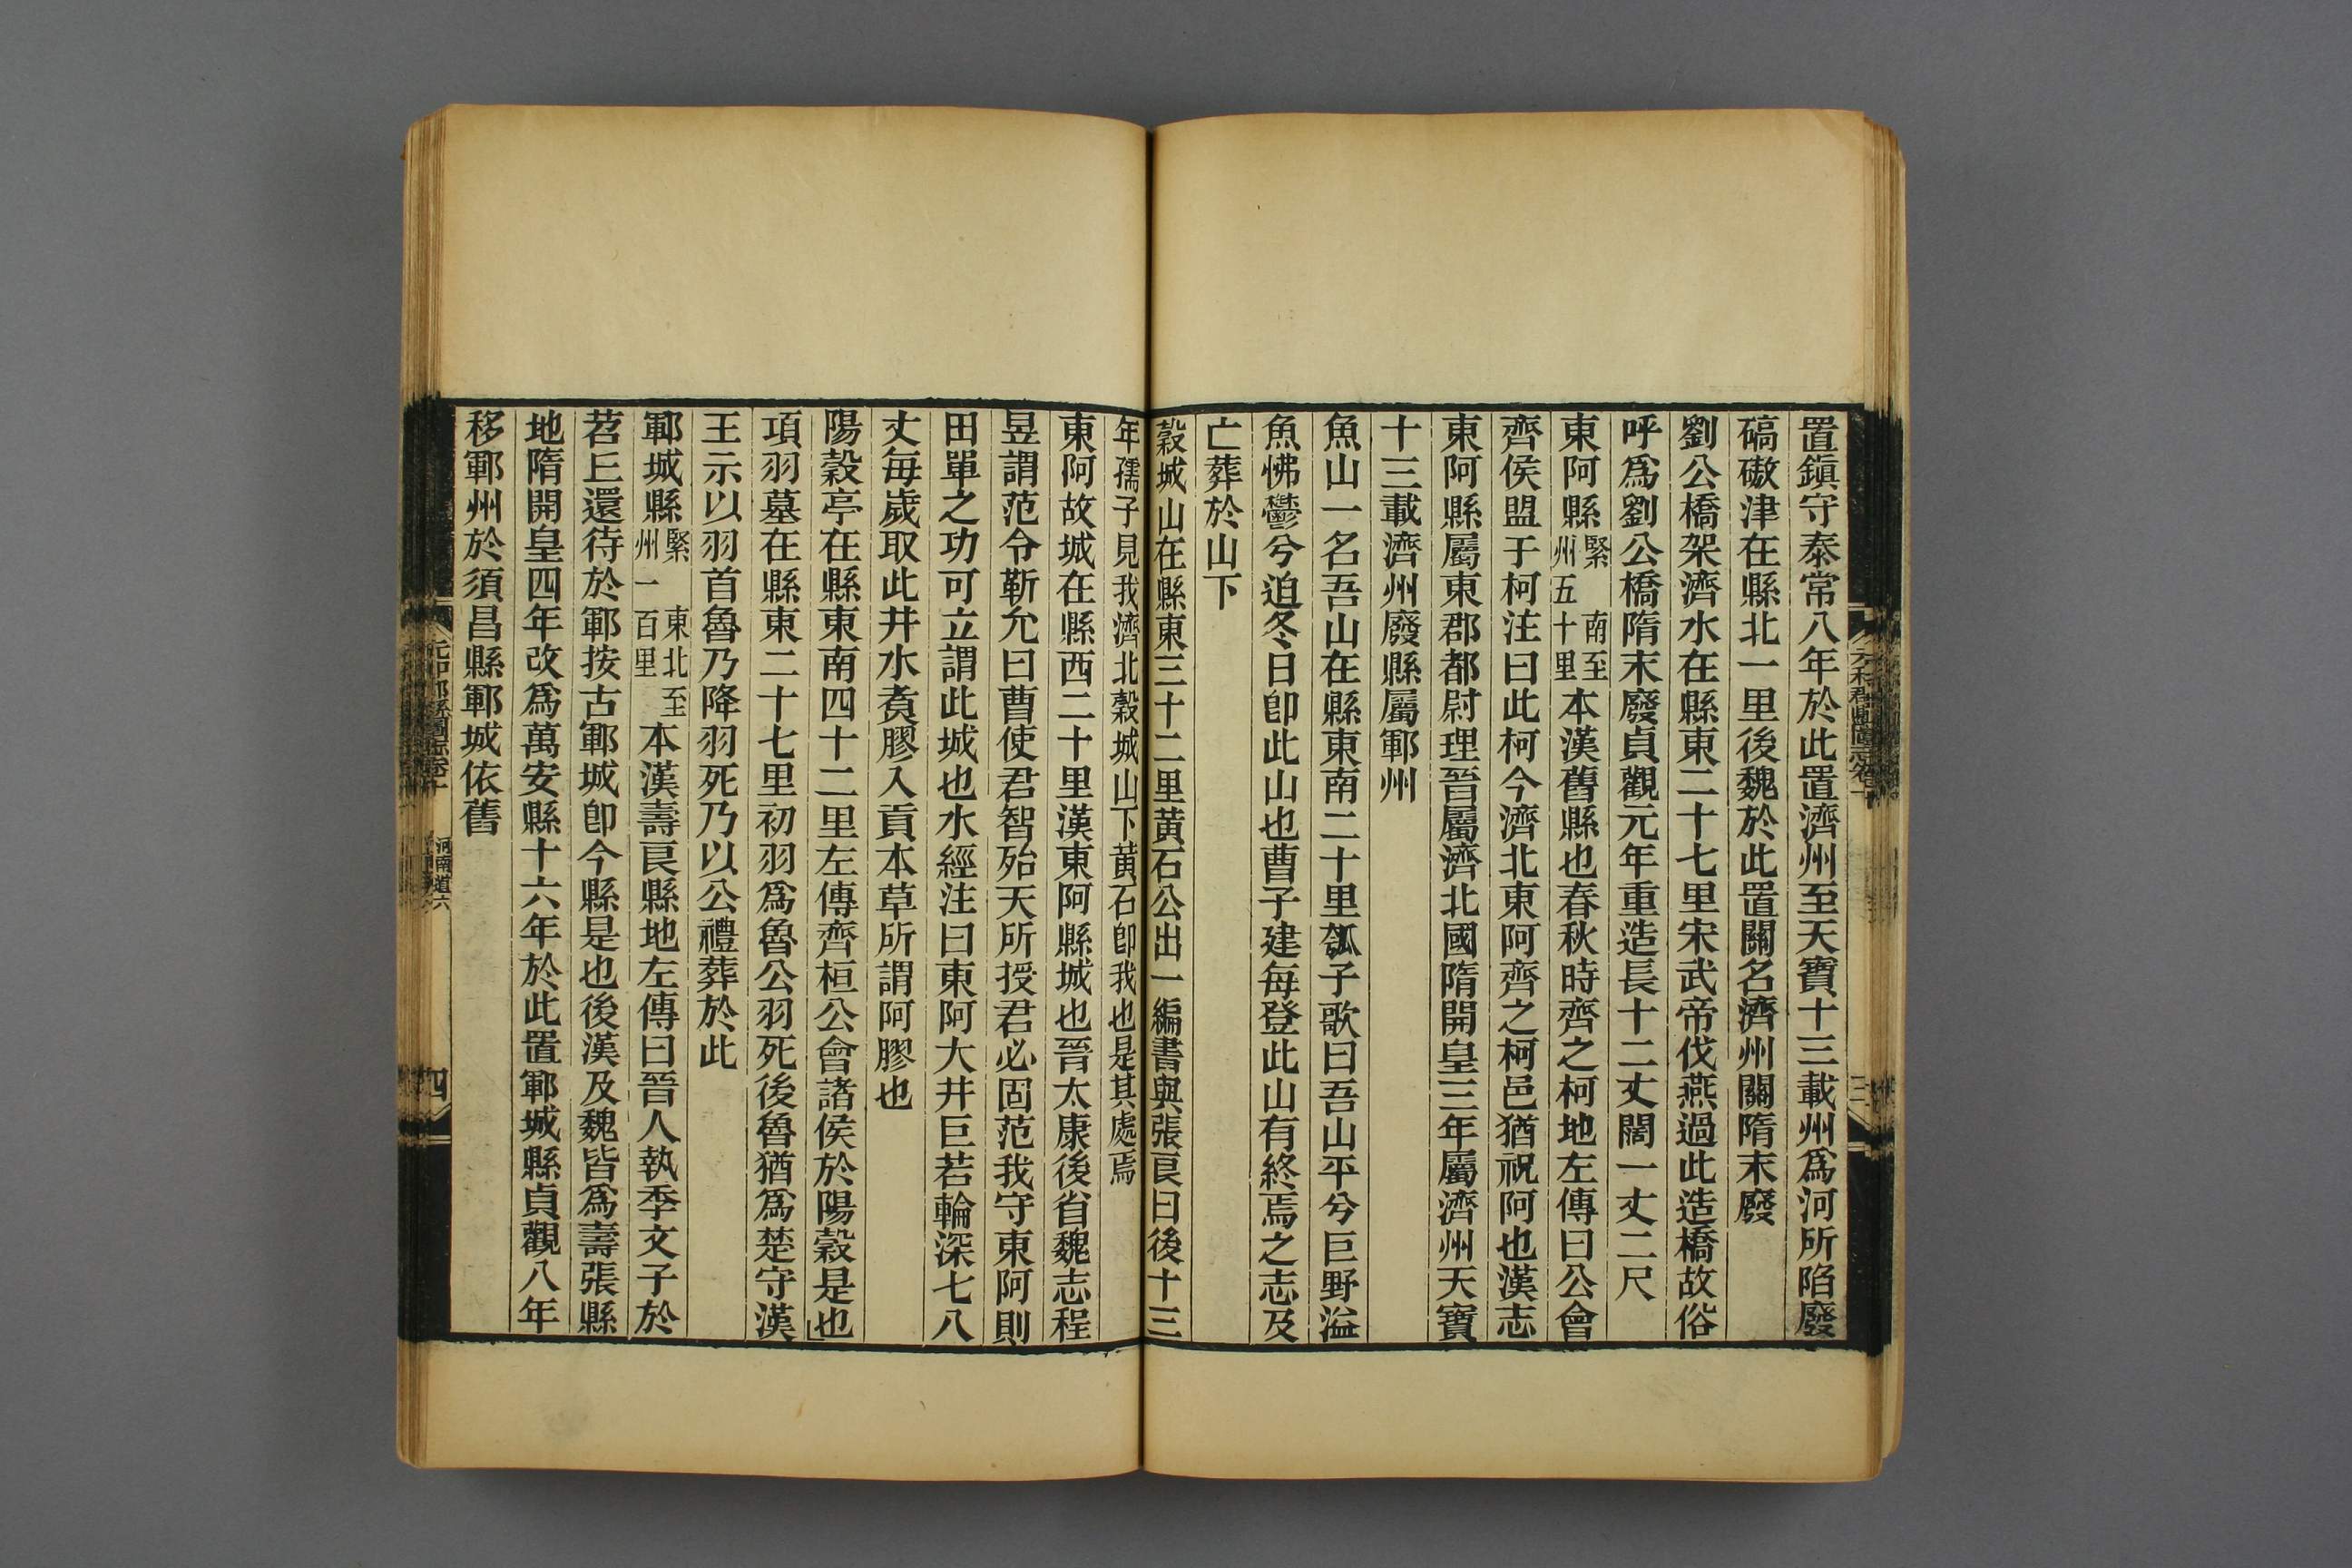 置鎮守泰常八年於此置濟州至天寶十三載州爲河所陷廢
碻磝津在縣北一里後魏於此置關名濟州關隋末廢
劉公橋架濟水在縣東二十七里宋武帝伐燕過此造橋故俗
呼爲劉公橋隋末廢貞觀元年重造長十二丈闊一丈二尺
東阿縣緊　南至州五十里本漢舊縣也春秋時齊之柯地左傳曰公會
齊侯盟于柯注曰此柯今濟北東阿齊之柯邑猶祝阿也漢志
東阿縣屬東郡都尉理晉屬濟北國隋開皇三年屬濟州天寶
十三載濟州廢縣屬鄆州
魚山一名吾山在縣東南二十里瓠子歌曰吾山平兮巨野溢
魚怫鬱兮迫冬日卽此山也曹子建每登此山有終焉之志及
亡葬於山下
穀城山在縣東三十二里黃石公出一編書與張良曰後十三
年孺子見我濟北穀城山下黃石卽我也是其處焉
東阿故城在縣西二十里漢東阿縣城也晉太康後省魏志程
昱謂范令靳允曰曹使君智殆天所授君必固范我守東阿則
田單之功可立謂此城也水經注曰東阿大井巨若輪深七八
丈每歲取此井水煑膠入貢本草所謂阿膠也
陽穀亭在縣東南四十二里左傳齊桓公會諸侯於陽穀是也
項羽墓在縣東二十七里初羽爲魯公羽死後魯猶爲楚守漢
王示以羽首魯乃降羽死乃以公禮葬於此
鄆城縣緊　東北至州一百里本漢壽良縣地左傳曰晉人執季文子於
苕丘還待於鄆按古鄆城卽今縣是也後漢及魏皆爲壽張縣
地隋開皇四年改爲萬安縣十六年於此置鄆城縣貞觀八年
移鄆州於須昌縣鄆城依舊
河南道六
四